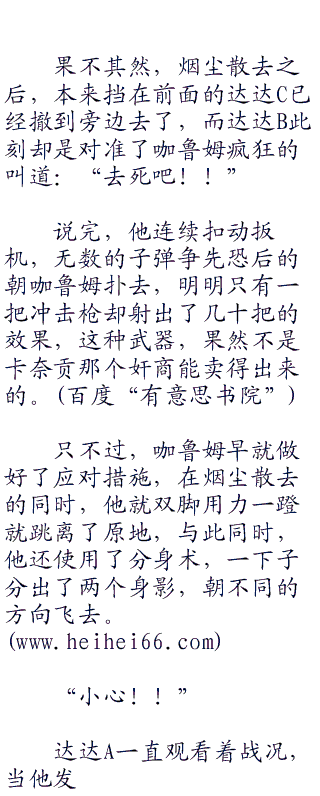 果不其然，烟尘散去之
后，本来挡在前面的达达C已
经撤到旁边去了，而达达B此
刻却是对准了咖鲁姆疯狂的
叫道：“去死吧！！”
说完，他连续扣动扳
机，无数的子弹争先恐后的
朝咖鲁姆扑去，明明只有一
把冲击枪却射出了几十把的
效果，这种武器，果然不是
卡奈贡那个奸商能卖得出来
的。(百度“有意思书院”)
只不过，咖鲁姆早就做
好了应对措施，在烟尘散去
的同时，他就双脚用力一蹬
就跳离了原地，与此同时，
他还使用了分身术，一下子
分出了两个身影，朝不同的
方向飞去。
(www.heihei66.com)
“小心！！”
达达A一直观看着战况，
当他发